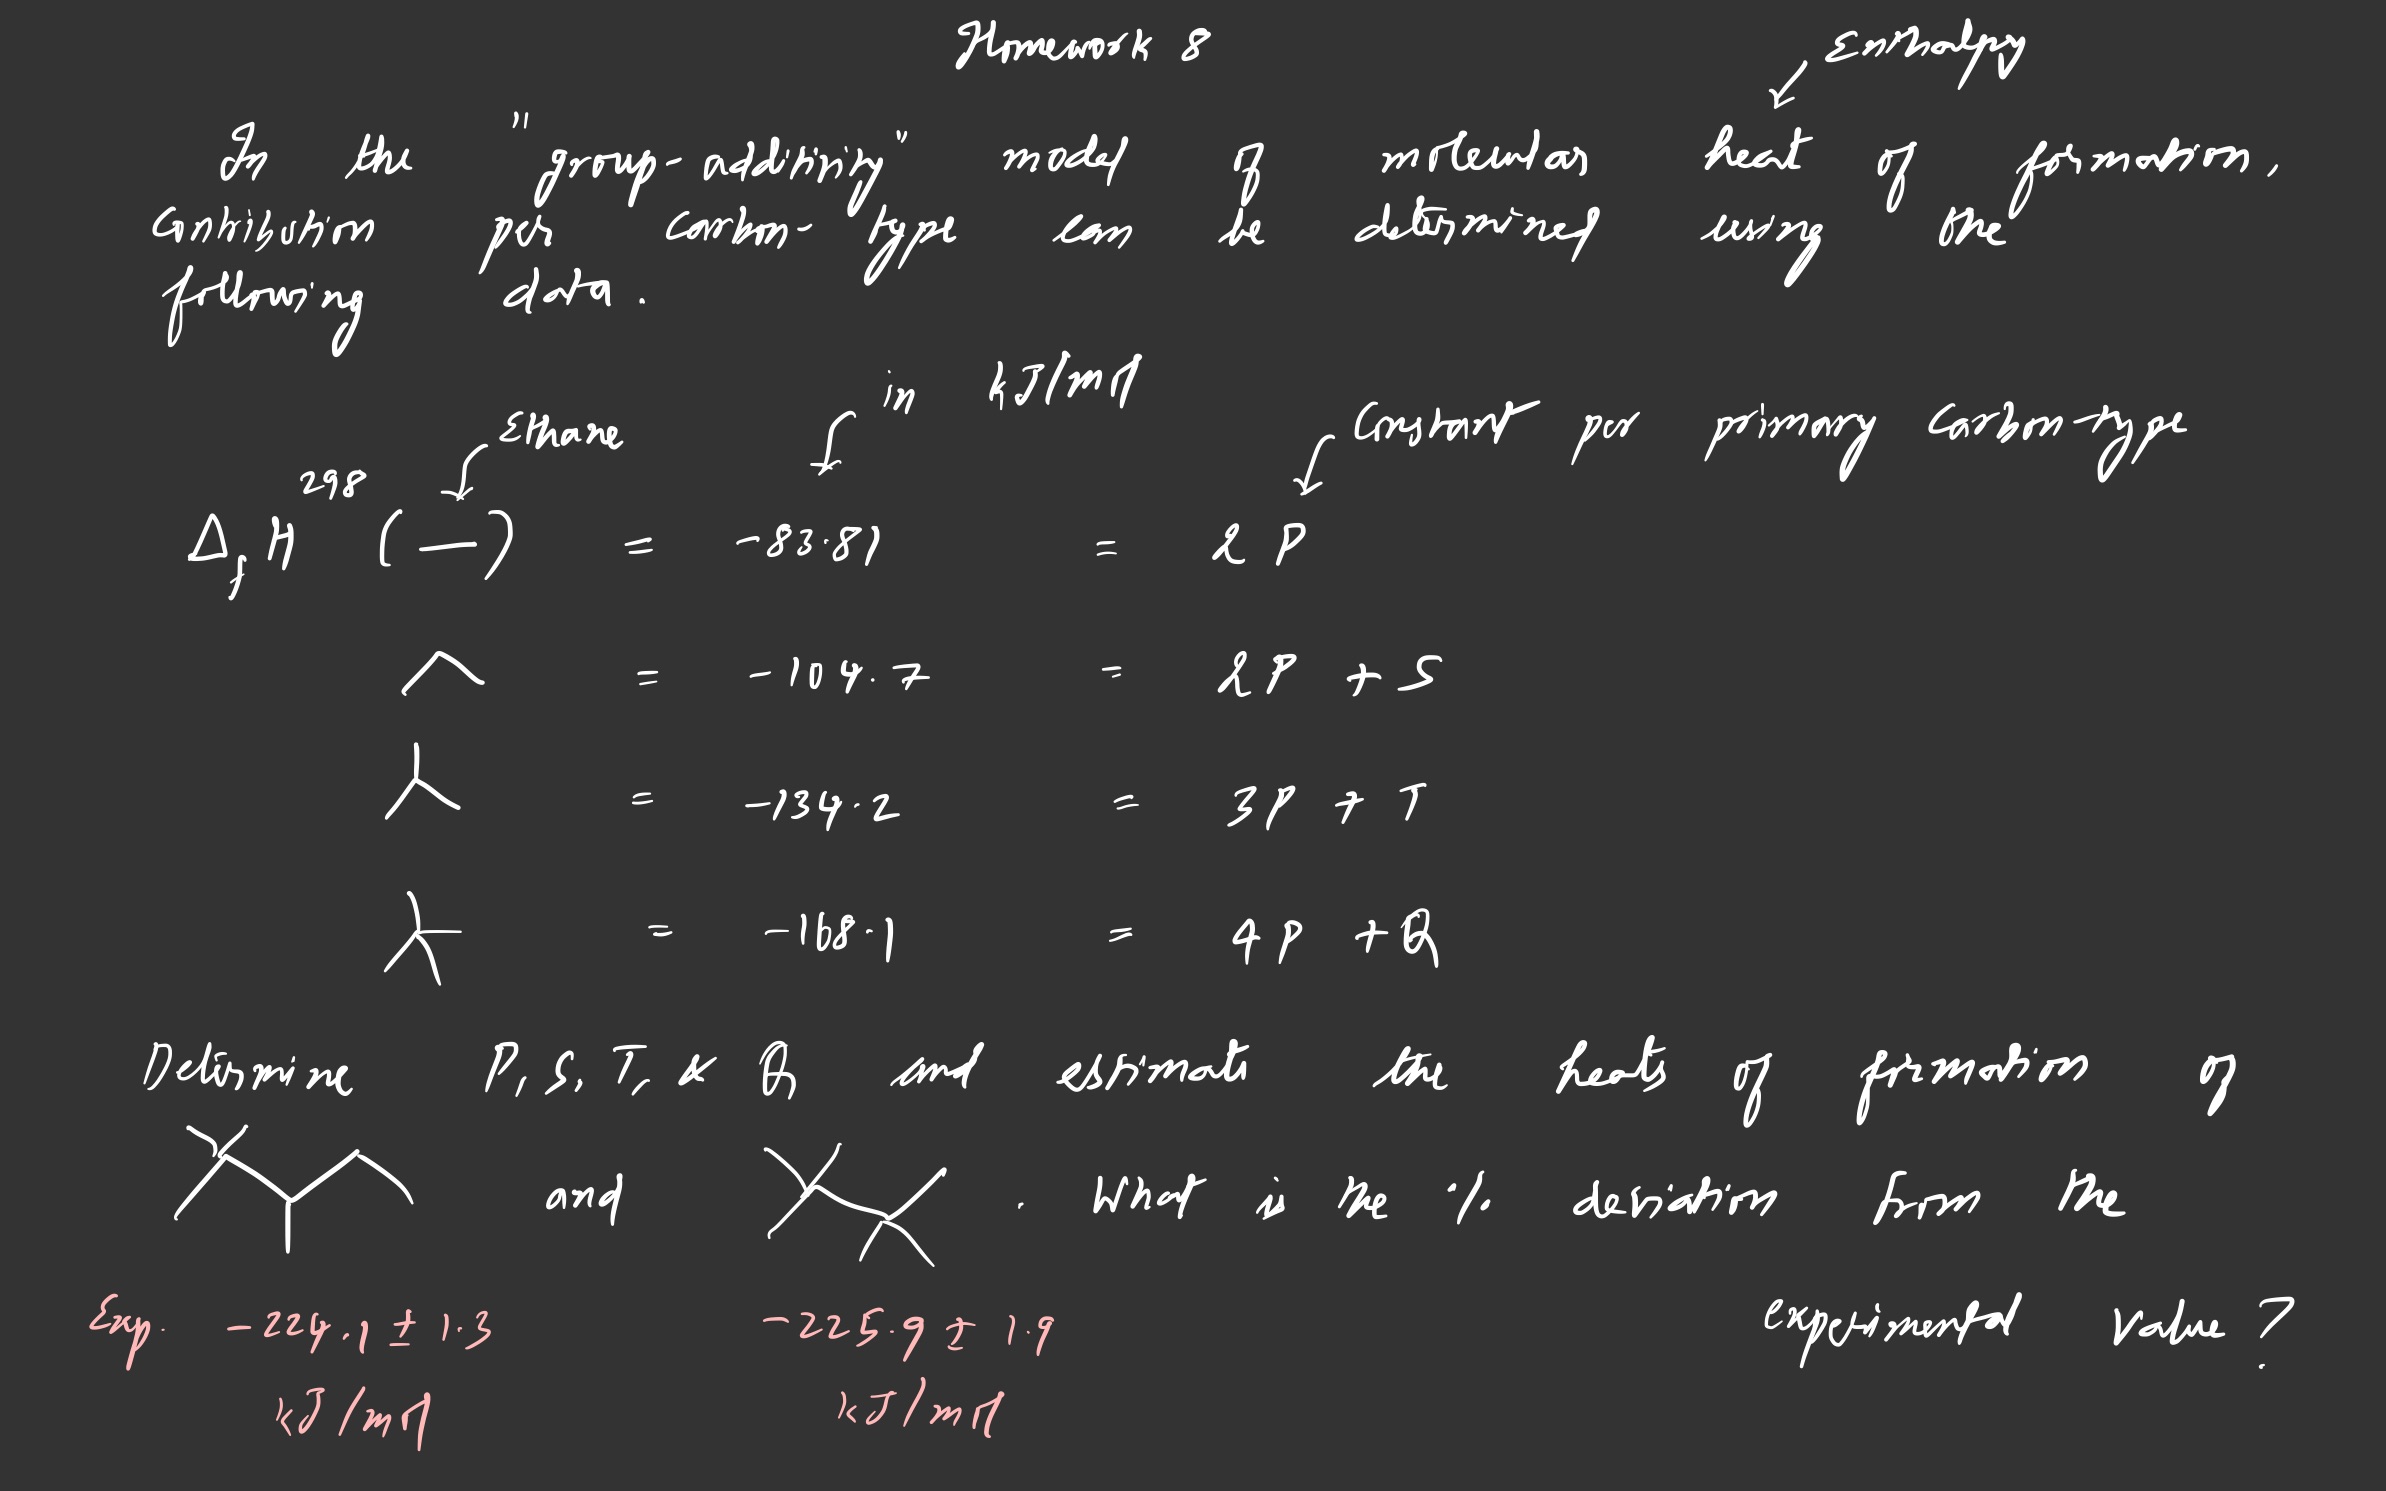 Homework 8
Enthalpy
In the "group-additivity" model of molecular heat of formation,
Contribution per carbon-type can be determined using the
following data.
in kJ/mol
Ethane
Constant per primary carbon-type
ΔfH²⁹⁸ ( — ) = -83.81 = 2P
= -104.7 = 2P + S
= -134.2 = 3P + T
= -168.1 = 4P + Q
Determine P, S, T & Q and estimate the heats of formation of
and . What is the % deviation from the
experimental value?
Exp. -224.1 ± 1.3 -225.9 ± 1.9
kJ/mol kJ/mol